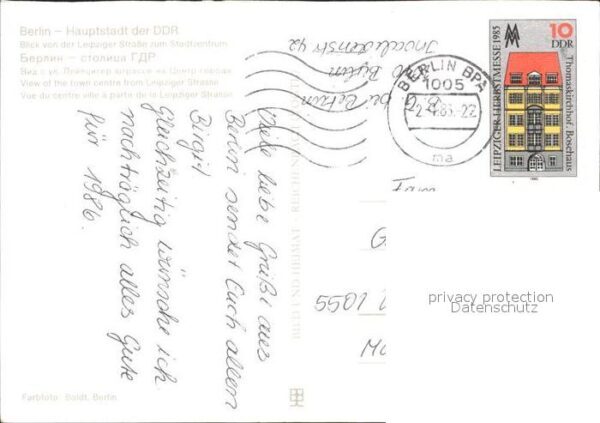 Berlin – Hauptstadt der DDR
Blick von der Leipziger Straße zum Stadtzentrum
Берлин – столица ГДР
Вид с ул. Лейпцигер штрассе на центр города
View of the town centre from Leipziger Strasse
Vue du centre ville à partir de la Leipziger Strasse
Viele liebe Grüße aus
Berlin sendet Euch allen
Birgit
Gleichzeitig wünsche ich
nachträglich alles Gute
für 1986.
BERLIN BPA
1005
ma
10
DDR
LEIPZIGER HERBSTMESSE 1985
Thomaskirchhof, Bosehaus
1985
Berlin
G
2055
Mo
privacy protection
Datenschutz
BILD UND HEIMAT
Farbfoto: Baldt, Berlin